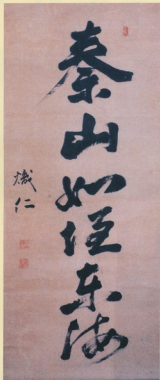 泰山如東海
熾仁